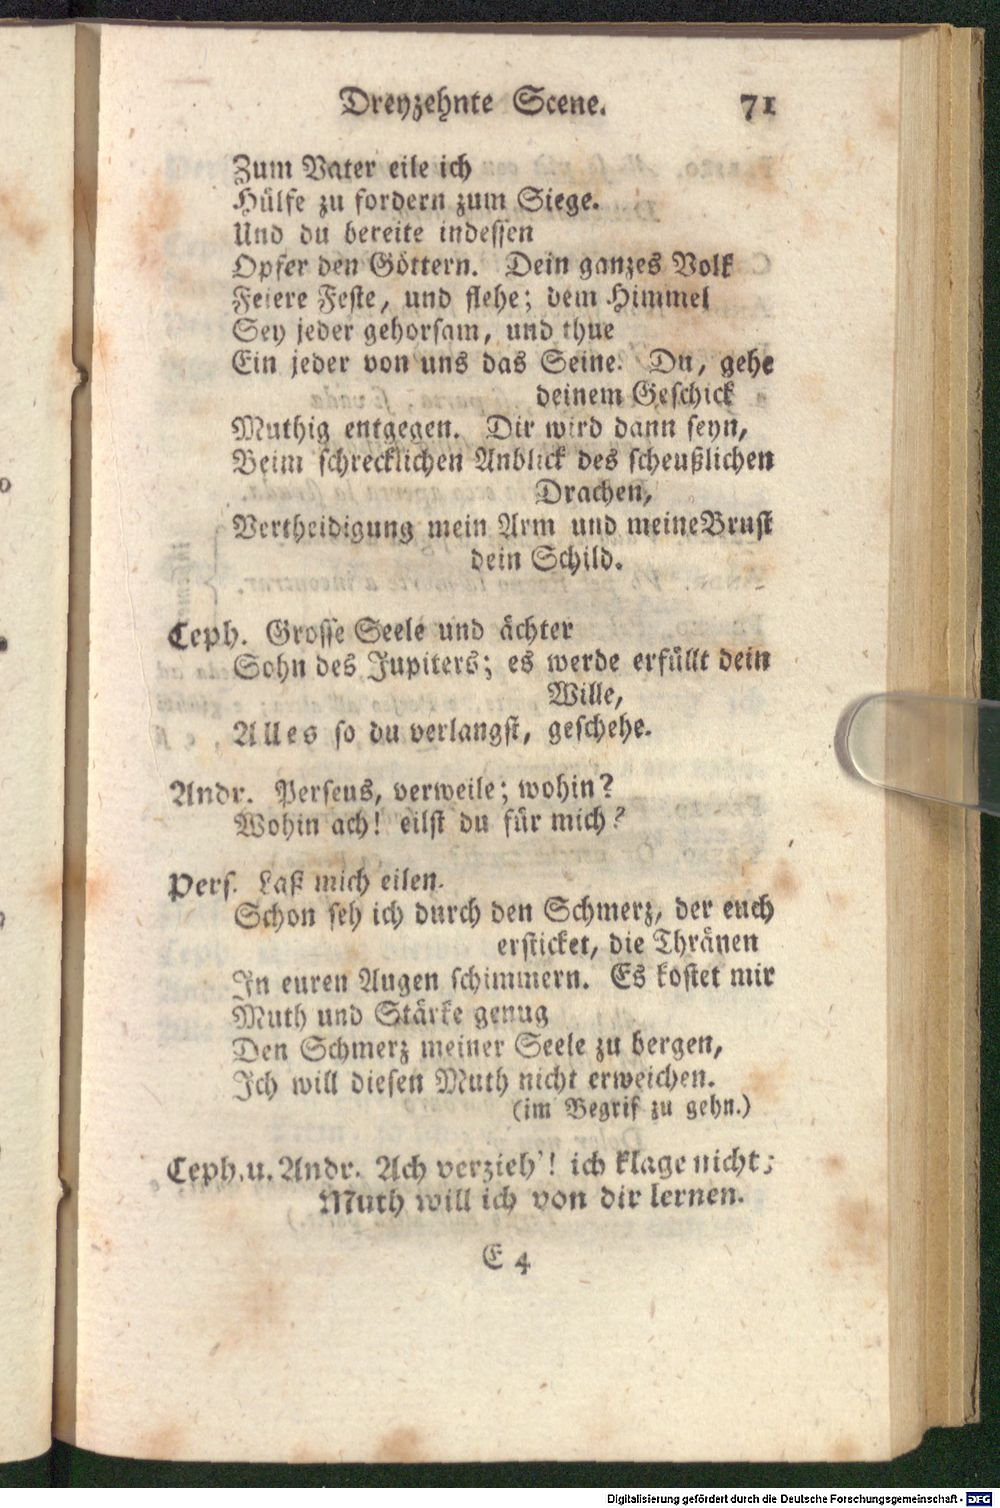 Dreyzehnte Scene. 71
Zum Vater eile ich
Hülfe zu fordern zum Siege.
Und du bereite indessen
Opfer den Göttern. Dein ganzes Volk
Feiere Feste, und flehe; dem Himmel
Sey jeder gehorsam, und thue
Ein jeder von uns das Seine. Du, gehe
deinem Geschick
Muthig entgegen. Dir wird dann seyn,
Beim schrecklichen Anblick des scheußlichen
Drachen,
Vertheidigung mein Arm und meine Brust
dein Schild.
Ceph. Grosse Seele und ächter
Sohn des Jupiters; es werde erfüllt dein
Wille,
Alles so du verlangst, geschehe.
Andr. Perseus, verweile; wohin?
Wohin ach! eilst du für mich?
Pers. Laß mich eilen.
Schon seh ich durch den Schmerz, der euch
ersticket, die Thränen
In euren Augen schimmern. Es kostet mir
Muth und Stärke genug
Den Schmerz meiner Seele zu bergen,
Ich will diesen Muth nicht erweichen.
(im Begrif zu gehn.)
Ceph. u. Andr. Ach verzieh'! ich klage nicht;
Muth will ich von dir lernen.
E 4
Digitalisierung gefördert durch die Deutsche Forschungsgemeinschaft - DFG